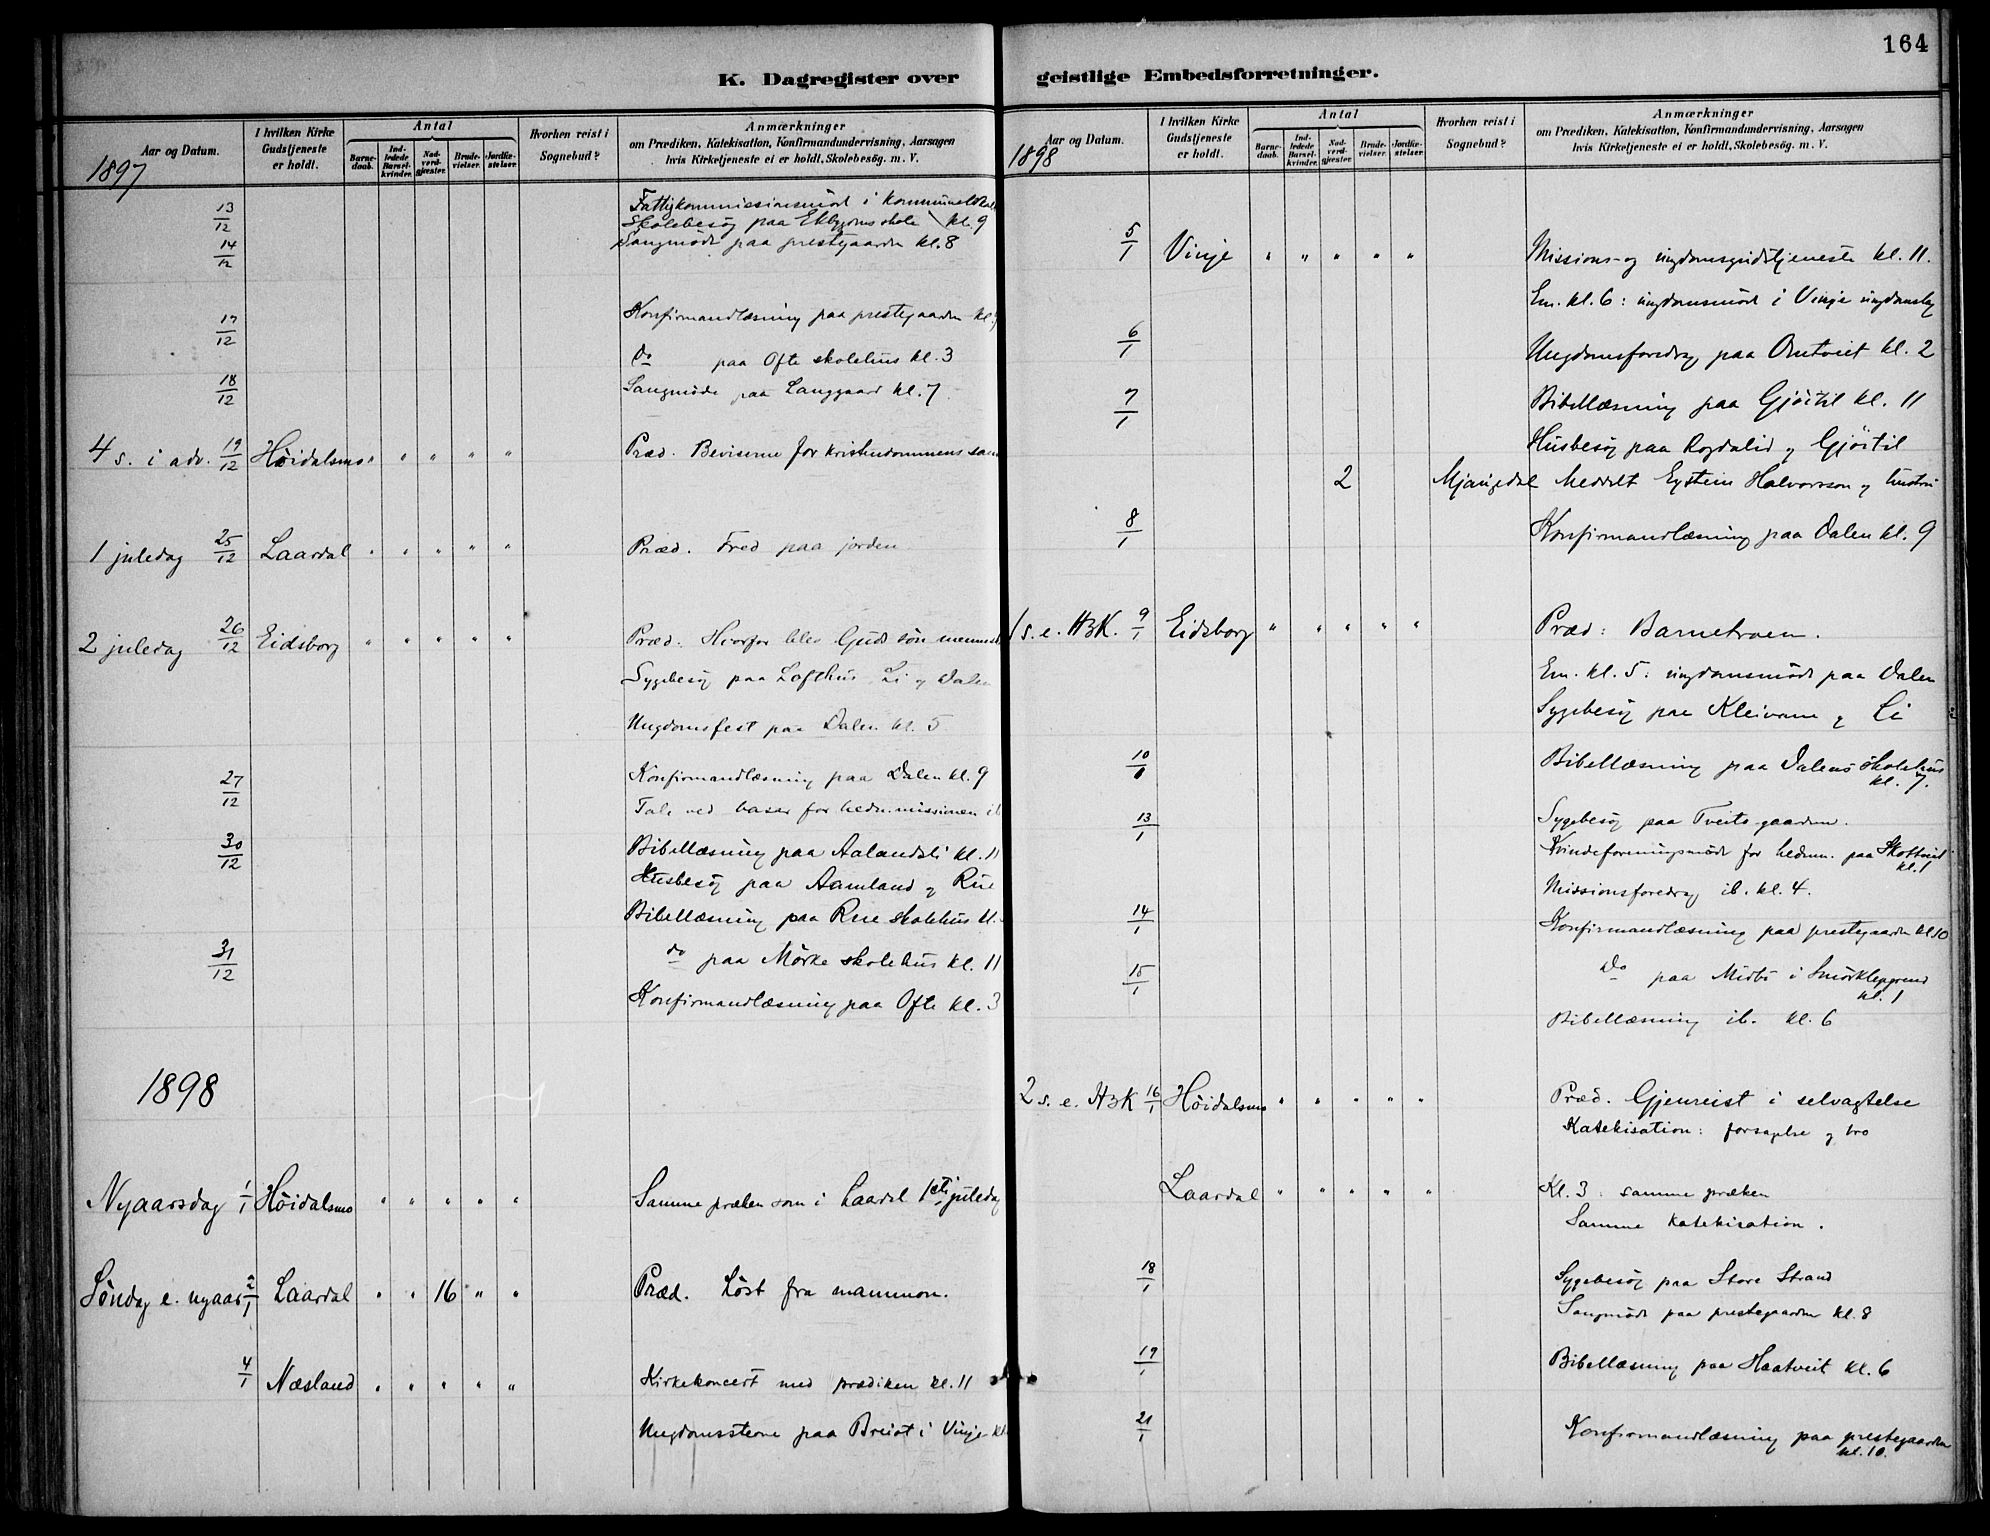 164
K. Dagregister over
Aar og Datum.
1897
I hvilken Kirke Gudstjeneste er holdt.
Antal
Barnedaab.
Indledede Barselkvinder.
Nadverdgjester.
Brudevielser.
Jordfæstelser.
Hvorhen reist i Sognebud?
Anmærkninger
om Prædiken, Katekisation, Konfirmandundervisning, Aarsagen
hvis Kirketjeneste ei er holdt, Skolebesøg. m. V.
13/12 Fattigkommissionsmöde i
Skolebesög paa skole kl. 9
14/12 Sangmöde paa prestegaarden kl. 8
17/12 Konfirmandlæsning paa prestegaarden kl.
do paa Ofte skolehus kl. 3
18/12 Sangmöde paa Langgaard kl. 7
4 s. i adv. 19/12 Höidalsmo " " " " " Præd. Beviserne for kristendommens
1 juledag 25/12 Laardal " " " " " Præd. Fred paa jorden
2 juledag 26/12 Eidsborg " " " " " Præd. Hvorfor blev Guds sön
Sygebesög paa Lofthus Li og Dalen
Ungdomsfest paa Dalen kl. 5
27/12 Konfirmandlæsning paa Dalen kl. 9
Tale ved basar for hedn.missionen ib
30/12 Bibellæsning paa Aalandsli kl. 11
Husbesög paa Aamland og Rue
Bibellæsning paa Rue skolehus kl.
31/12 do paa Mörke skolehus kl. 11
Konfirmandlæsning paa Ofte kl. 3
1898
Nyaarsdag 1/1 Höidalsmo " " " " " Samme præken som i Laardal 1ste juledag
Söndag e. nyaar 2/1 Laardal " " 16 " " Præd. Löst fra mammon.
4/1 Næsland " " " " " Kirkekoncert med prædiken kl. 11
Ungdomsstevne paa i Vinje kl
geistlige Embedsforretninger.
Aar og Datum.
1898
I hvilken Kirke Gudstjeneste er holdt.
Antal
Barnedaab.
Indledede Barselkvinder.
Nadverdgjester.
Brudevielser.
Jordfæstelser.
Hvorhen reist i Sognebud?
Anmærkninger
om Prædiken, Katekisation, Konfirmandundervisning, Aarsagen
hvis Kirketjeneste ei er holdt, Skolebesög. m. V.
5/1 Vinje " " " " " Missions- og ungdomsgudstjeneste kl. 11.
Em. kl. 6: ungdomsmöde i Vinje
6/1 Ungdomsforedrag paa Omtveit kl. 2
7/1 Bibellæsning paa Gjöitil kl. 11
Husbesög paa og Gjöitil
2 Meddelt Eystein Halvorsson og hustru
8/1 Konfirmandlæsning paa Dalen kl. 9
1 s. e. H3K. 9/1 Eidsborg " " " " " Præd: Barnetroen.
Em. kl. 5: ungdomsmöde paa Dalen
Sygebesög paa Kleivane og Li
10/1 Bibellæsning paa Dalens skolehus
kl. 7.
13/1 Sygebesög paa Tveitogaarden.
Kvindeforeningsmöde for hedn. paa
kl. 1
Missionsforedrag ib. kl. 4.
14/1 Konfirmandlæsning paa prestegaarden kl 10
15/1 do paa Midbö i
kl. 1
Bibellæsning ib. kl. 6
2 s. e. H3K 16/1 Höidalsmo " " " " " Præd. Gjenreist i selvagtelse
Katekisation: forsagelse og tro
Laardal " " " " " Kl. 3: samme præken
Samme katekisation.
18/1 Sygebesög paa Store Strand
Sangmöde paa prestegaarden kl. 8
19/1 Bibellæsning paa Haatveit kl. 6
21/1 Konfirmandlæsning paa prestegaarden
kl. 10.